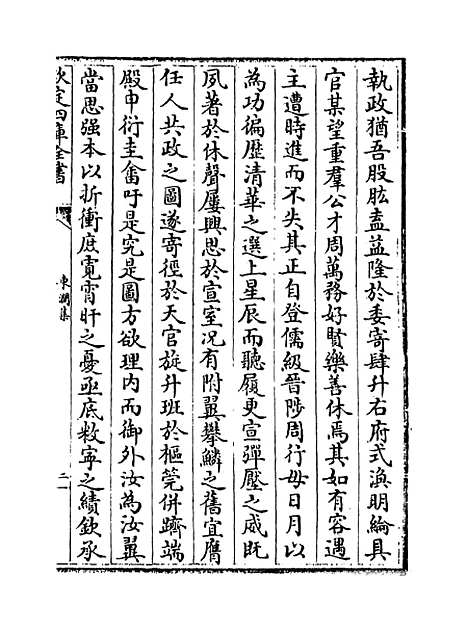 執政猶吾股肱盍益隆於委寄肆升右府式渙明綸具
官某望重羣公才周萬務好賢樂善休焉其如有容遇
主遭時進而不失其正自登儒級晉陟周行毋日月以
為功徧歴清華之選上星辰而聽履更宣彈壓之威既
夙著於休聲屢興思於宣室况有附翼攀鱗之舊宜膺
任人共政之圖遂寄徑於天官旋升班於樞筦併躋端
殿申衍圭畬吁是究是圖方欲理内而御外汝為汝翼
當思强本以折衝庶寛宵旰之憂亟底敉寧之績欽承
欽定四庫全書
東澗集
二